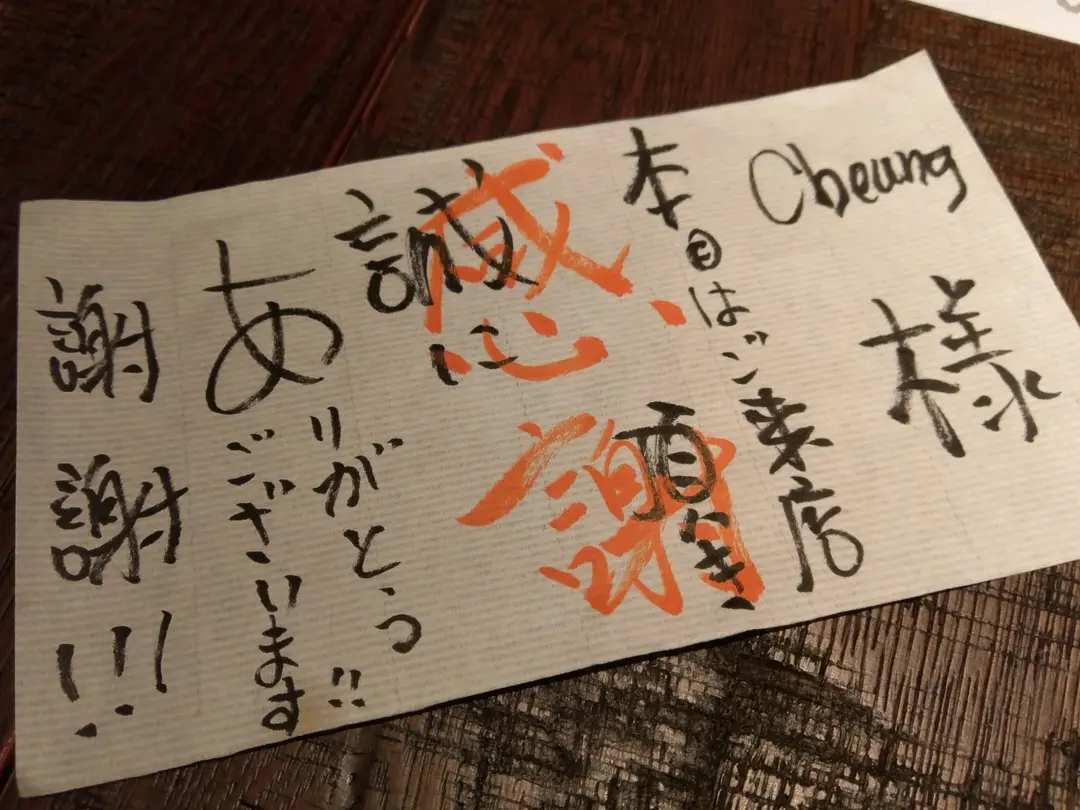 Cheung
様
本日はご来店
頂き
誠に
ありがとう
ございます!!
謝謝!!!
感謝